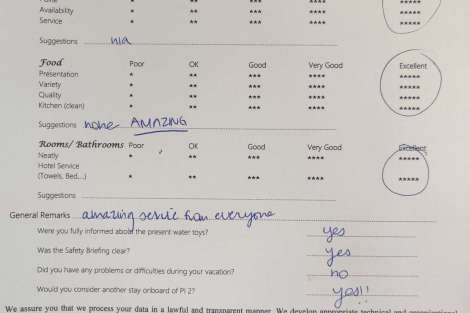 Availability * ** *** **** *****
Service * ** *** **** *****
Suggestions n/a
Food Poor OK Good Very Good Excellent
Presentation * ** *** **** *****
Variety * ** *** **** *****
Quality * ** *** **** *****
Kitchen (clean) * ** *** **** *****
Suggestions none AMAZING
Rooms/ Bathrooms Poor OK Good Very Good Excellent
Neatly * ** *** **** *****
Hotel Service
(Towels, Bed,...) * ** *** **** *****
Suggestions
General Remarks amazing service from everyone
Were you fully informed about the present water toys? yes
Was the Safety Briefing clear? yes
Did you have any problems or difficulties during your vacation? no
Would you consider another stay onboard of PI 2? yes!!
We assure you that we process your data in a lawful and transparent manner. We develop appropriate technical and organizational